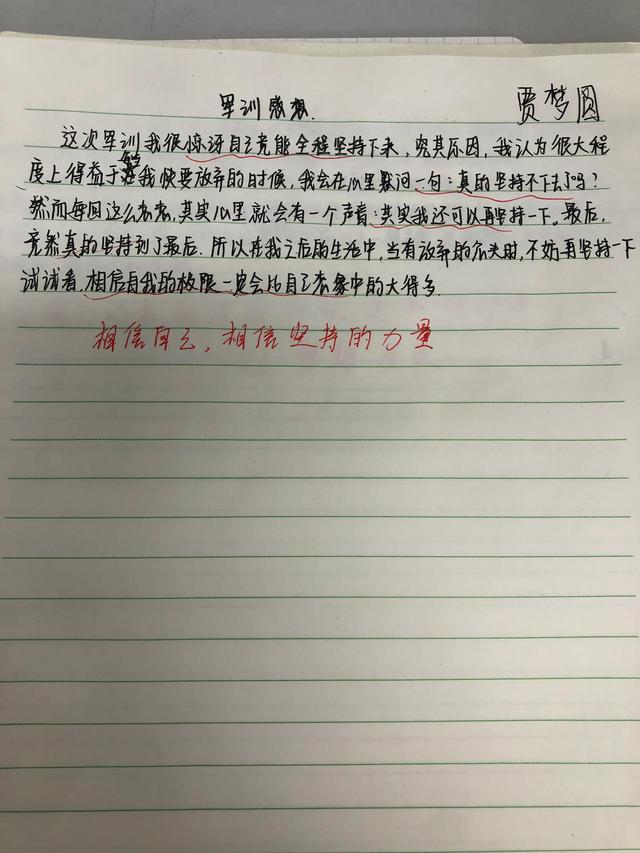 军训感想
贾梦圆
这次军训我很惊讶自己竟能全程坚持下来，究其原因，我认为很大程
度上得益于每当我快要放弃的时候，我会在心里疑问一句：真的坚持不下去了吗？
然而每回这么想想，其实心里就会有一个声音：其实我还可以再坚持一下。最后，
竟然真的坚持到了最后。所以在我之后的生活中，当有放弃的念头时，不妨再坚持一下
试试看，相信自我的极限一定会比自己想象中的大得多。
相信自己，相信坚持的力量